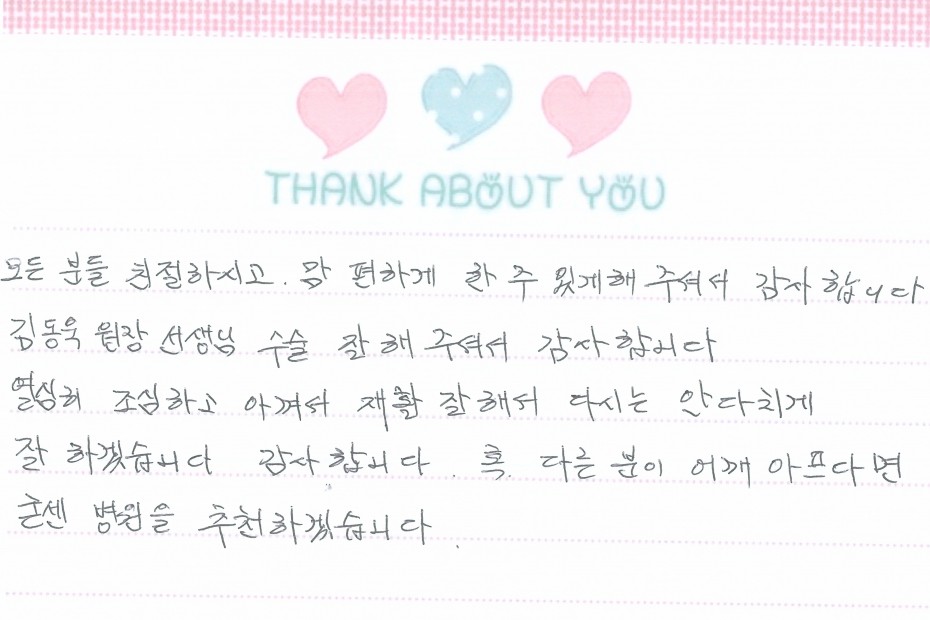 THANK ABOUT YOU
모든 분들 친절하시고. 맘 편하게 할 수 있게해 주셔서 감사합니다
김동욱 원장 선생님 수술 잘해 주셔서 감사합니다
열심히 조심하고 아껴서 재활 잘해서 다시는 안다치게
잘 하겠습니다 감사합니다. 혹. 다른 분이 어깨 아프다면
병원을 추천하겠습니다.